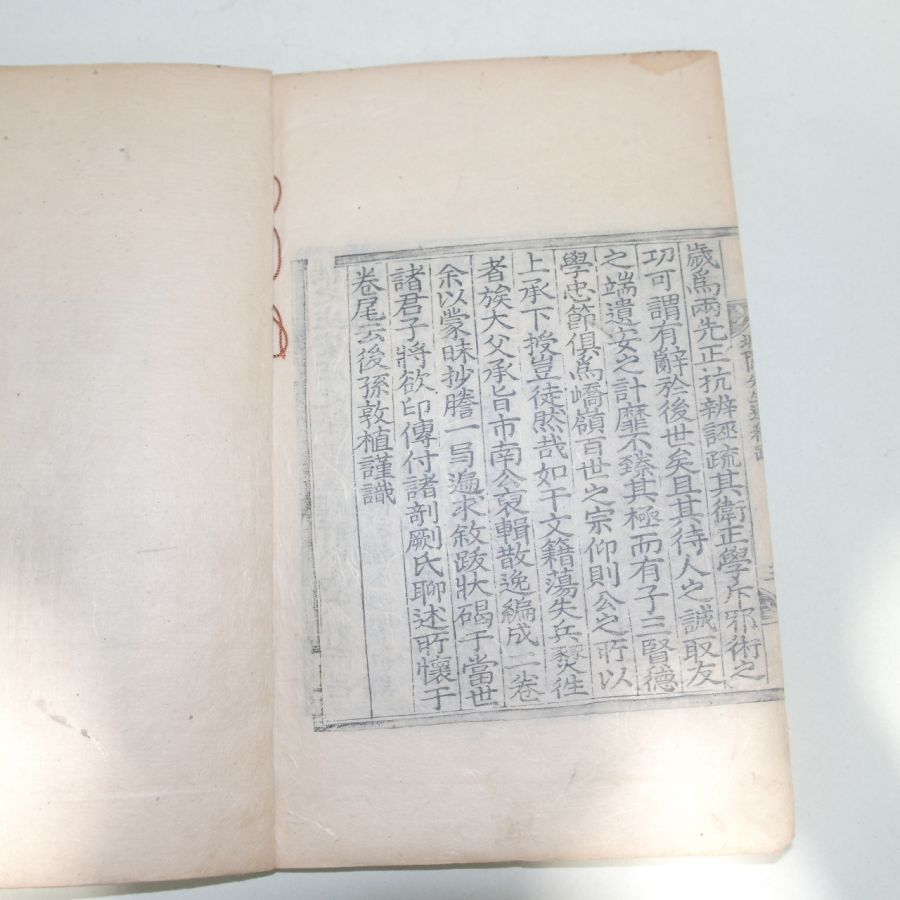 歲爲兩先正抗辨誣疏其衛正學斥邪術之
功可謂有辭於後世矣且其待人之誠取友
之端遺安之計靡不臻其極而有子三賢德
學忠節俱爲嶠嶺百世之宗仰則公之所以
上承下授豈徒然哉如干文籍蕩失兵燹徃
者族大父承旨市南公裒輯散逸編成二卷
余以蒙昧抄謄一局遍求敘跋狀碣于當世
諸君子將欲印傳付諸剞劂氏聊述所懷于
卷尾云後孫敦植謹識